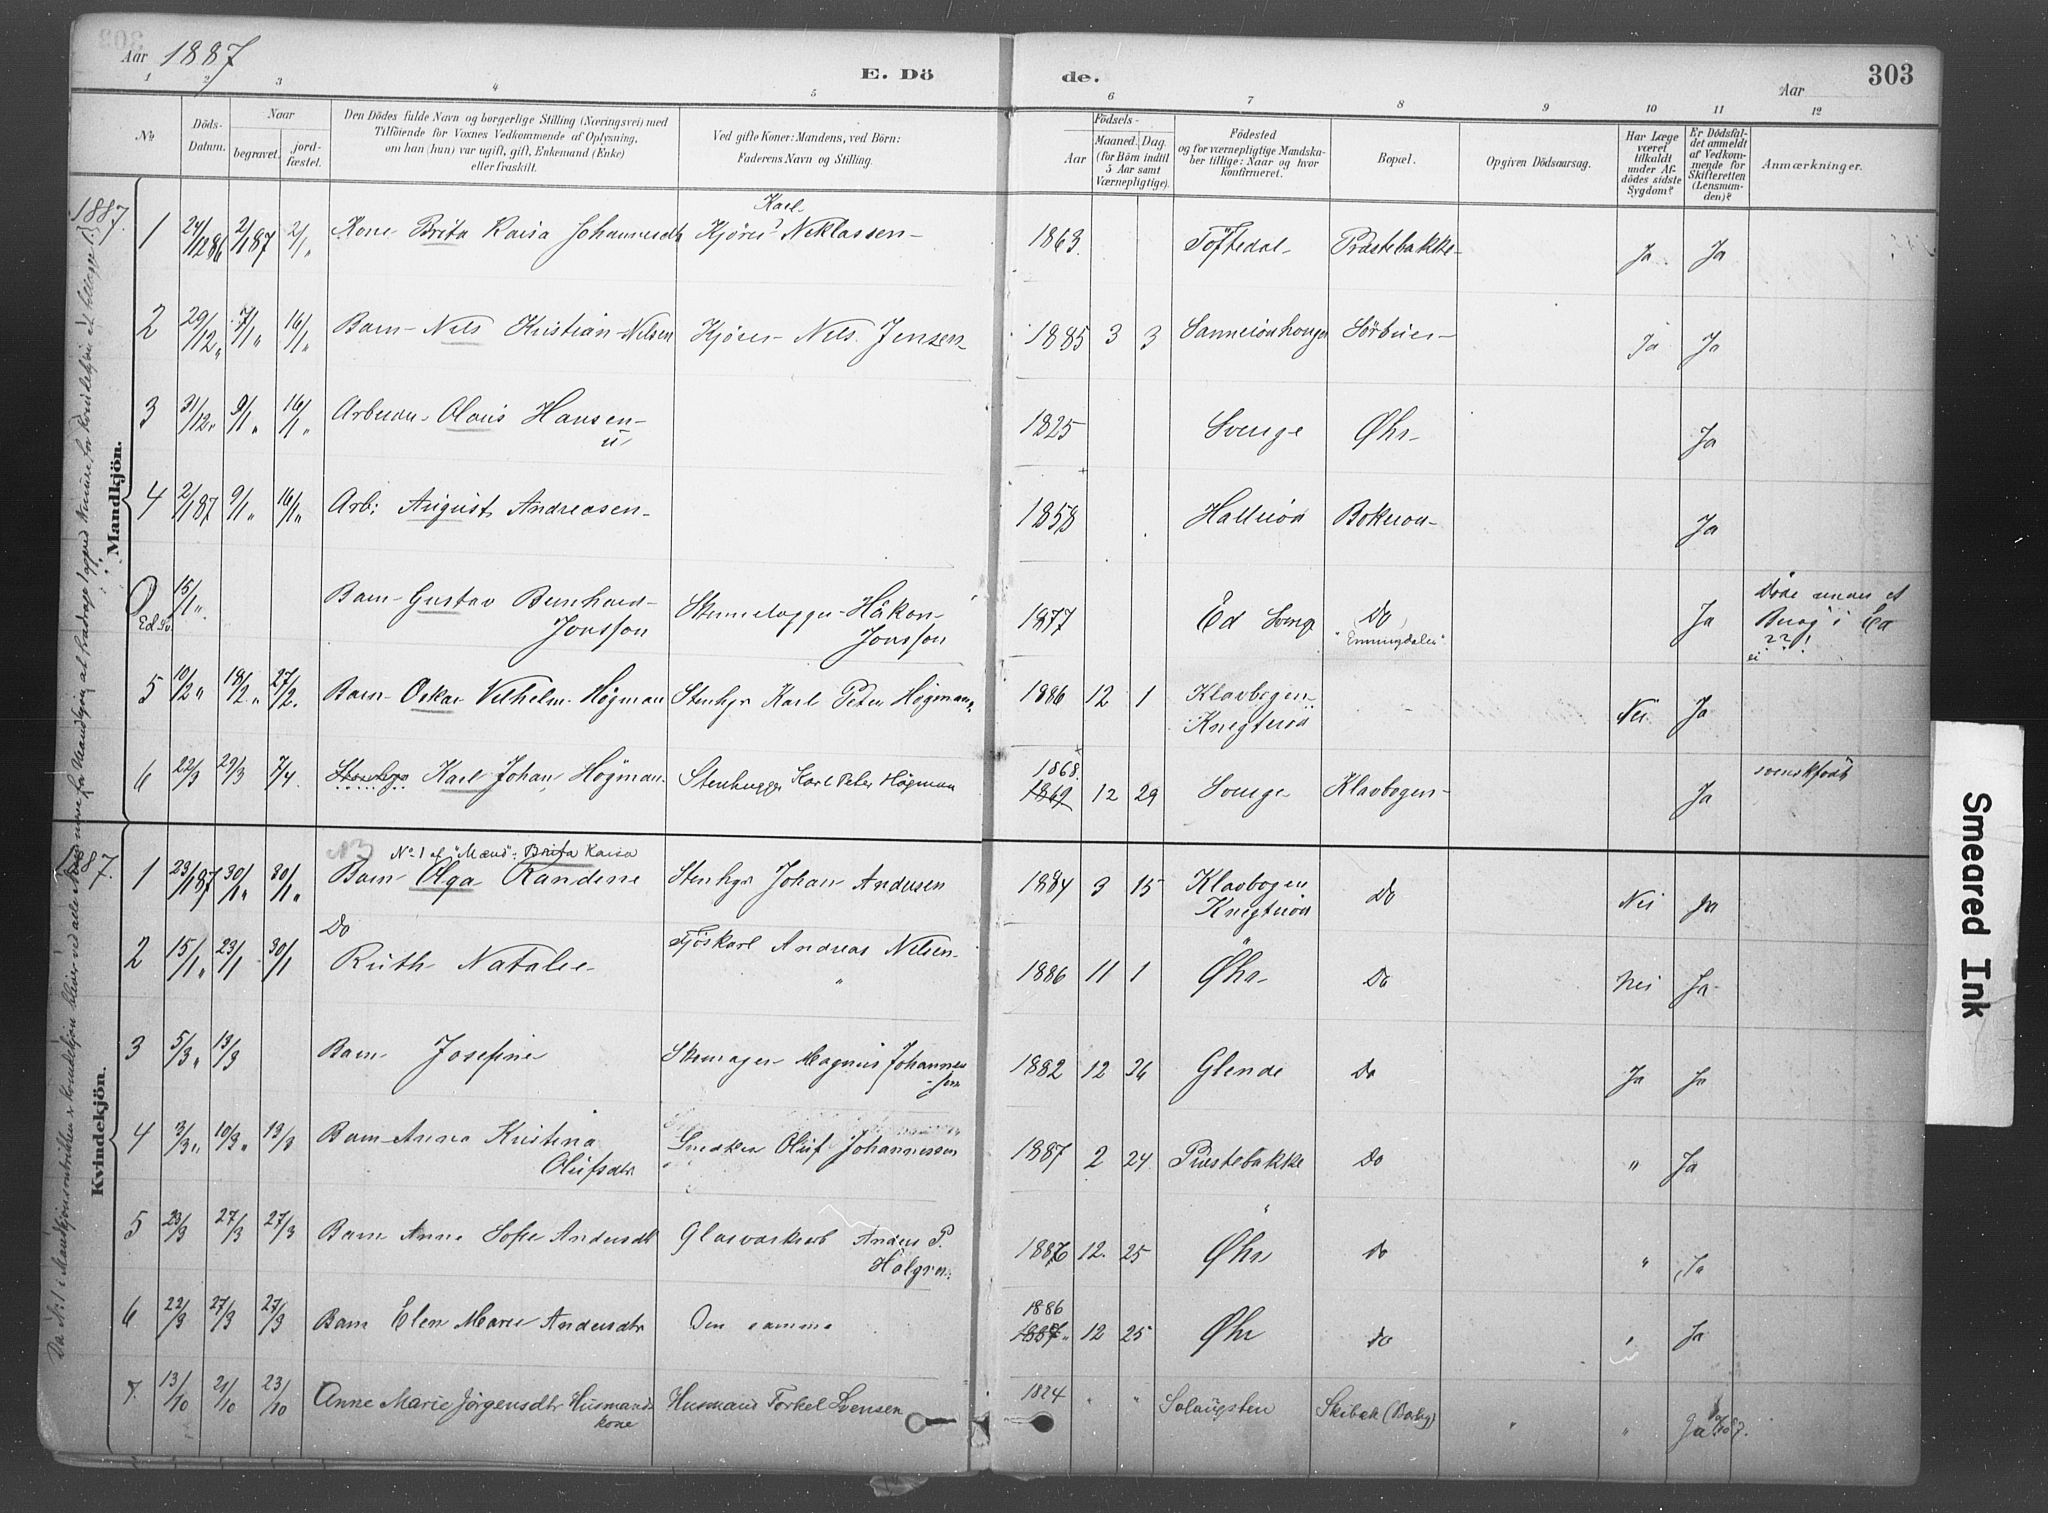 Aar 1887
E. Döde.
Aar
303
1 2 3 4 5 6 7 8 9 10 11 12
No
Döds-Datum.
Naar
begravet.
jordfæstet.
Den Dödes fulde Navn og borgerlige Stilling (Næringsvei) med
Tilföiende for Voxnes Vedkommende af Oplysning,
om han (hun) var ugift, gift, Enkemand (Enke)
eller fraskilt.
Ved gifte Koner: Mandens, ved Börn:
Faderens Navn og Stilling.
Födsels-
Aar
Maaned. Dag.
(for Börn indtil
5 Aar samt
Værnepligtige).
Födested
og for værnepligtige Mandskaber tillige: Naar og hvor
konfirmeret.
Bopæl.
Opgiven Dödsaarsag.
Har Læge
været
tilkaldt
under Afdödes sidste
Sygdom?
Er Dödsfaldet anmeldt
af Vedkommende for
Skifteretten
(Lensmanden)?
Anmærkninger.
1887.
Mandkjön.
1 24/12 86 2/1 87 2/1 " Kone Brita Kaisa Johannesdtr Kjörer Karl Niklassen 1863. Töftedal Præstebakke Ja Ja
2 29/12 " 7/1 " 16/1 " Barn Nils Kristian Nilsen Kjörer Nils Jensen 1885 3 3 Sörbuer Ja Ja
3 31/12 " 9/1 " 16/1 " Olaus Hansen 1825 Sverige Øhr Ja
u
4 2/1 87 9/1 " 16/1 " Arb: August Andreasen 1858 Bokerød Ja
Ed Sv. 15/1 " Barn Gustav Bernhard Jonsson Stenhugger Håkon Jonsson 1877 Ed Sverige Do "Enningdalen" Ja Døde under et Besøg i Ed
5 10/2 " 19/2 " 27/2. Barn Oskar Vilhelm Högman Stenhgr Karl Peter Högman 1886 12 1 Klavbogen Knegterød Nei Ja
6 22/3 29/3 7/4. Stenhgr Karl Johan Högman Stenhugger Karl Peter Högman 1868. 1869 12 29 Sverige Klavbogen Ja svenskfødt
1887.
Kvindekjön.
No 1 af "Mænd": Brita Kaisa
1 23/1 87 30/1 " 30/1 " Barn Olga Randine Stenhgr Johan Andersen 1884 3 15 Klavbogen Knegterød Do Nei Ja
2 15/1 " 23/1 30/1 Do Ruth Natalie Fjöskarl Andreas Nilsen 1886 11 1 Øhr Do Nei Ja
3 5/3 " 13/3 Barn Josefine Skomager Magnus Johannessen 1882 12 26 Glende Do Ja Ja
4 3/3 " 10/3 " 13/3 Barn Anna Kristina Olufsdtr Snedker Oluf Johannessen 1887 2 24 Præstebakke Do " Ja
5 23/3 27/3 27/3 Barn Anne Sofie Andersdtr Anders P. Holgren 1886 12. 25 Øhr do " Ja
6 22/3 27/3 27/3 Barn Elen Marie Andersdtr Den samme 1886 1887 12 25 Øhr do " Ja
7. 13/10 21/10 23/10 Anne Marie Jørgensdtr Husmandskone Husmand Torkel Svensen 1824 " " Solaugsten Skibak (Barby) " " Ja
Smeared Ink